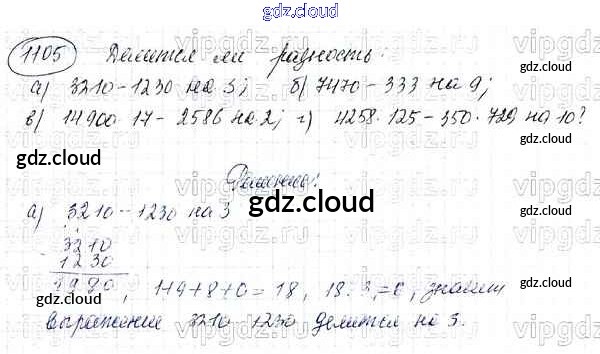 gdz.cloud
1105 Делится ли разность:
а) 3210-1230 на 3; б) 7470-333 на 9;
в) 14900·17-2586 на 2; г) 4258·125-350·729 на 10?
gdz.cloud gdz.cloud
Решение:
а) 3210-1230 на 3
gdz.cloud
3210
1230
1980, 1+9+8+0=18, 18:3=6, значит
выражение 3210-1230 делится на 3.
gdz.cloud gdz.cloud